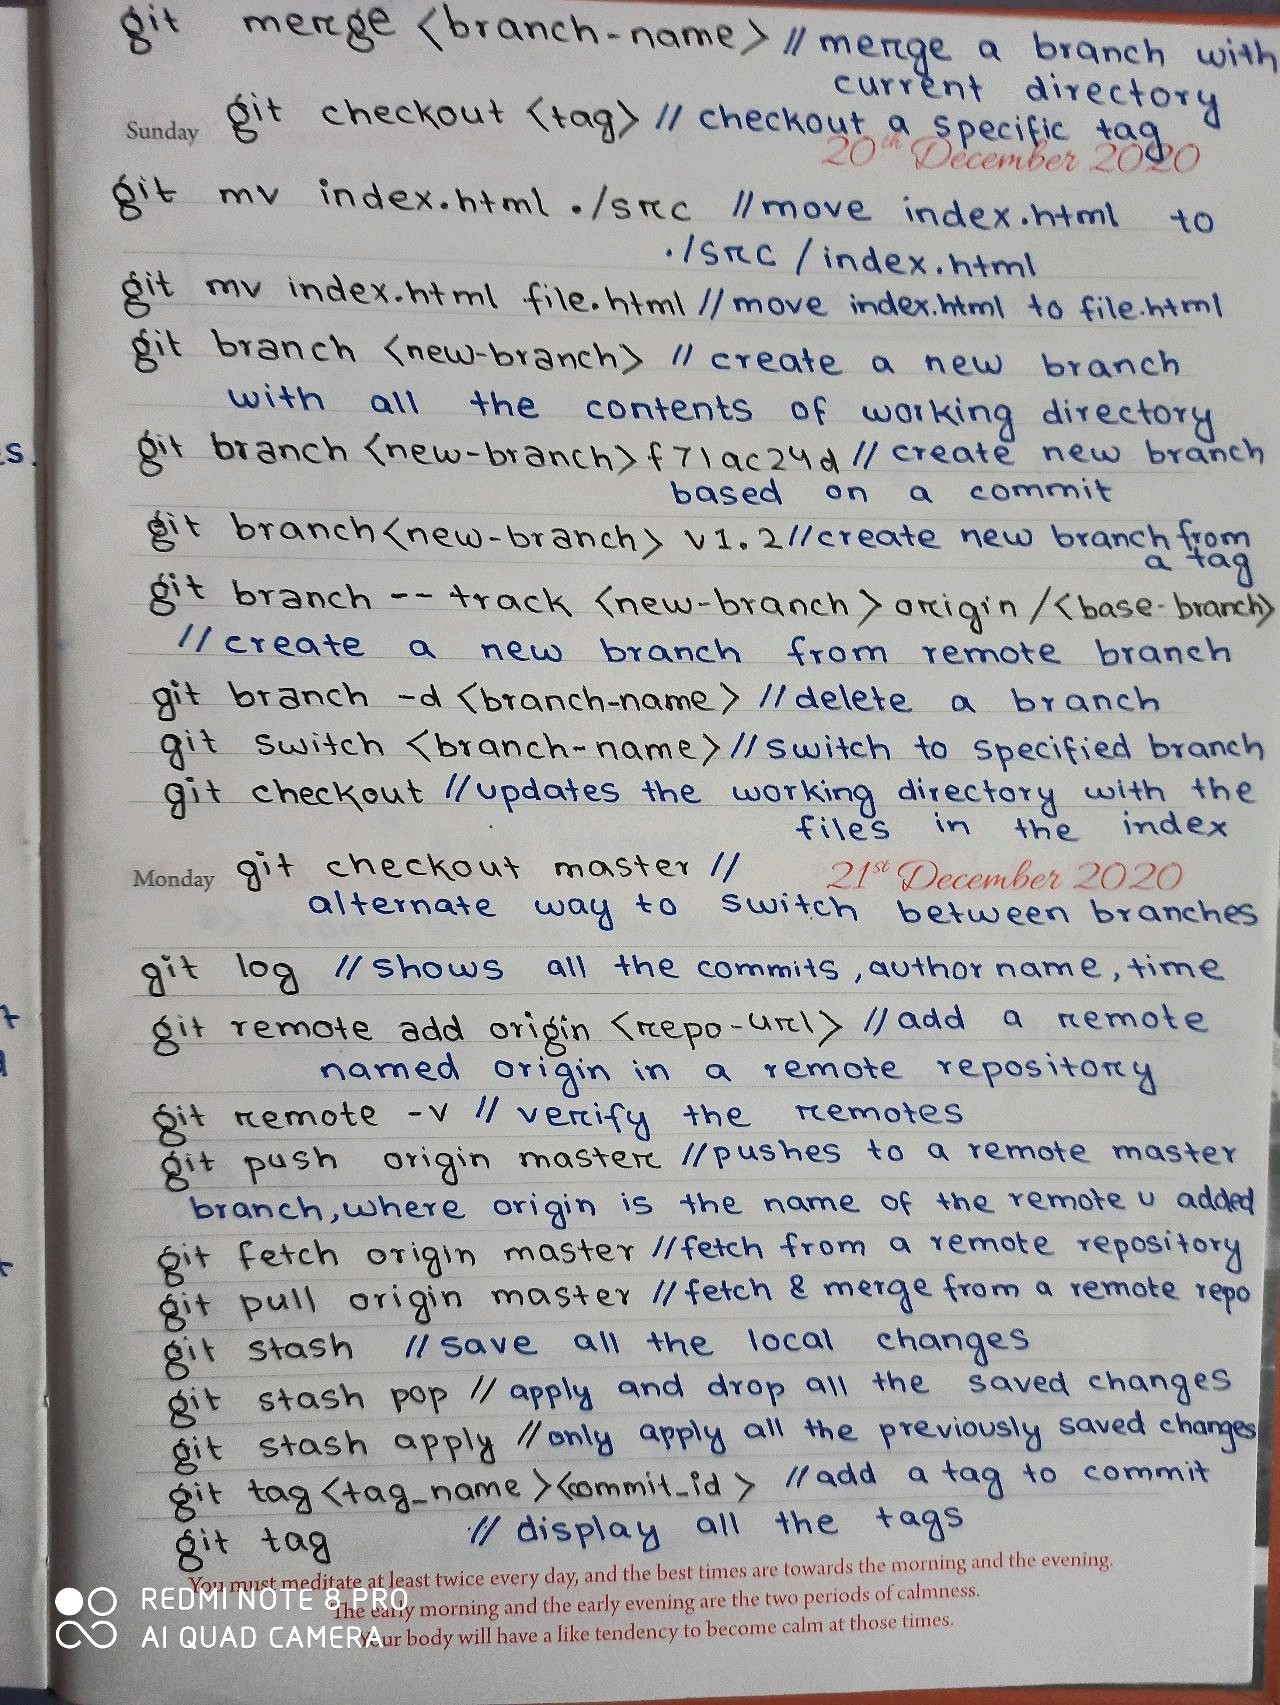 git merge <branch-name> // merge a branch with
current directory
Sunday git checkout <tag> // checkout a specific tag
20th December 2020
git mv index.html ./src // move index.html to
./src/index.html
git mv index.html file.html // move index.html to file.html
git branch <new-branch> // create a new branch
with all the contents of working directory
s.
git branch <new-branch> f71ac24d // create new branch
based on a commit
git branch <new-branch> v1.2 // create new branch from
a tag
git branch -- track <new-branch> origin /<base-branch>
// create a new branch from remote branch
git branch -d <branch-name> // delete a branch
git switch <branch-name> // switch to specified branch
git checkout // updates the working directory with the
files in the index
Monday git checkout master // 21st December 2020
alternate way to switch between branches
git log // shows all the commits, author name, time
git remote add origin <repo-url> // add a remote
named origin in a remote repository
git remote -v // verify the remotes
git push origin master // pushes to a remote master
branch, where origin is the name of the remote u added
git fetch origin master // fetch from a remote repository
git pull origin master // fetch & merge from a remote repo
git stash // save all the local changes
git stash pop // apply and drop all the saved changes
git stash apply // only apply all the previously saved changes
git tag <tag_name> <commit_id> // add a tag to commit
git tag // display all the tags
You must meditate at least twice every day, and the best times are towards the morning and the evening.
The early morning and the early evening are the two periods of calmness.
Your body will have a like tendency to become calm at those times.
REDMI NOTE 8 PRO
AI QUAD CAMERA